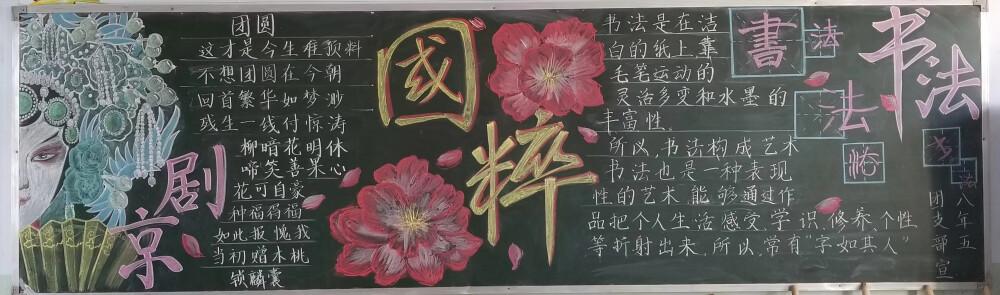 团圆
这才是今生难预料
不想团圆在今朝
回首繁华如梦渺
残生一线付惊涛
柳暗花明休
啼笑善果心
花可自豪
种福得福
如此报愧我
当初赠木桃
锁麟囊
京剧
國粹
书法是在洁
白的纸上靠
毛笔运动的
灵活多变和水墨的
丰富性
所以,书法构成艺术
书法也是一种表现
性的艺术,能够通过作
品把个人生活感受,学识,修养,个性
等折射出来,所以,常有"字如其人"
書
法
法
书法
八年五
团支部宣